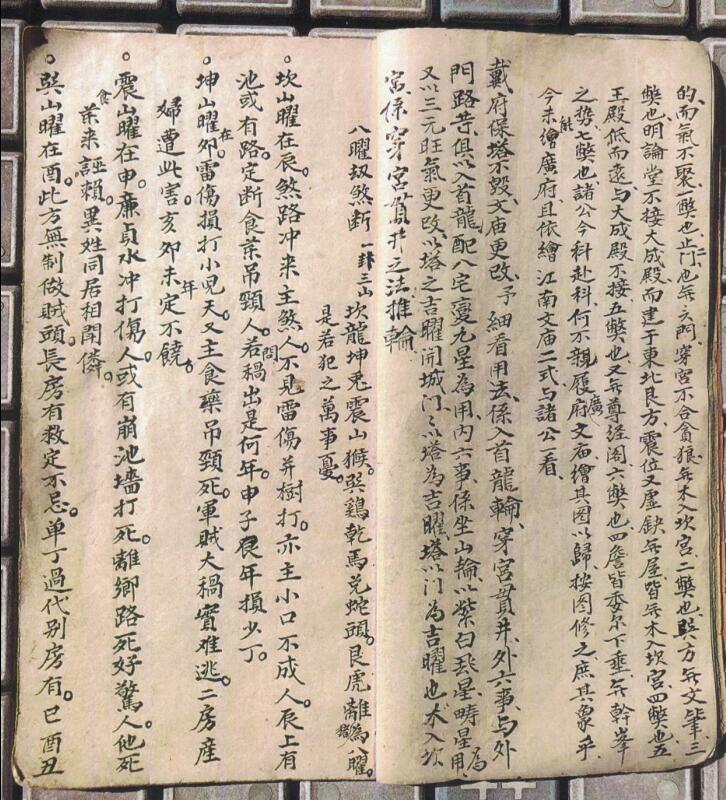 的、而氣不聚一獘也、正門也無六門、穿宮不合貪狼、無木入坎宮、二獘也、巽方無文筆三
獘也、明論堂不接大成殿、而建于東北艮方、震位又虛缺無屋、皆無木入坎宮四獘也、五
王殿低而遠、与大成殿不接五獘也、又無尊经阁六獘也、四詹皆委尔下垂、無幹峯
之势、七獘也、諸公今科赴科、何不親履廣府文庙繪其图以歸、按图修之、庶其象乎
今未能繪廣府、且依繪江南文庙二式与諸公一看
戴府保塔不毀、文庙更改、予細看用法、係入首龍輪、穿宮貫井、外六事、与外
門路苛俱以入首龍配八宅变九星為用、内六事、係坐山輪以紫白飛星、疇星為用、
又以三元旺氣更改、以塔之吉曜開城门、以塔為吉曜、塔以门為吉曜也、木入坎
宮係穿宮貫井之法推輪
八曜刼煞断 一卦三山 坎龍坤兎震山猴。巽鷄乾馬兌蛇頭。艮虎離猪為八曜。
是若犯之萬事憂。
坎山曜在辰。煞路冲来主煞人。不見雷傷并樹打。亦主小口不成人。辰上有
池或有路。定断食茶吊頸人。若問禍出是何年。申子辰年損少丁。
坤山曜在卯。雷傷損打小児天。又主食藥吊頸死。軍賊大禍實难逃。二房産
婦遭此害。亥卯未年定不饒。
震山曜在申。亷貞水冲打傷人。或有崩池墻打死。離鄉路死好驚人。他死
食茶来誣賴。異姓同居相閗僯。
巽山曜在酉。此方無制做賊頭。長房有救定不忌。单丁過代别房有。巳酉丑